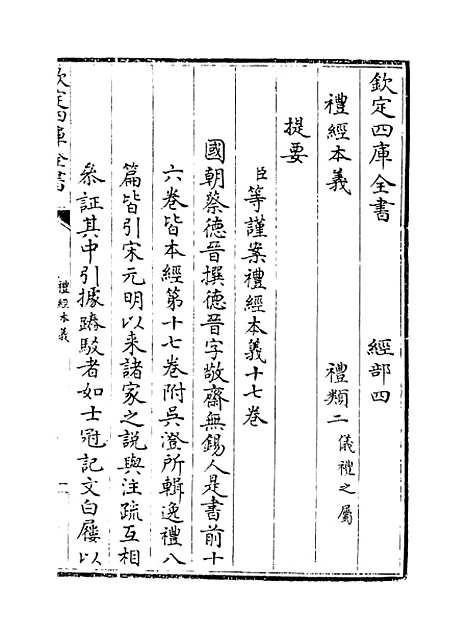 欽定四庫全書　經部四
禮經本義　禮類二儀禮之屬
提要
臣等謹案禮經本義十七卷
國朝蔡德晉撰德晉字敬齋無錫人是書前十
六卷皆本經第十七卷附吳澄所輯逸禮八
篇皆引宋元明以来諸家之説與注疏互相
叅証其中引據踳駁者如士冠記文白屨以
欽定四庫全書
禮經本義
一